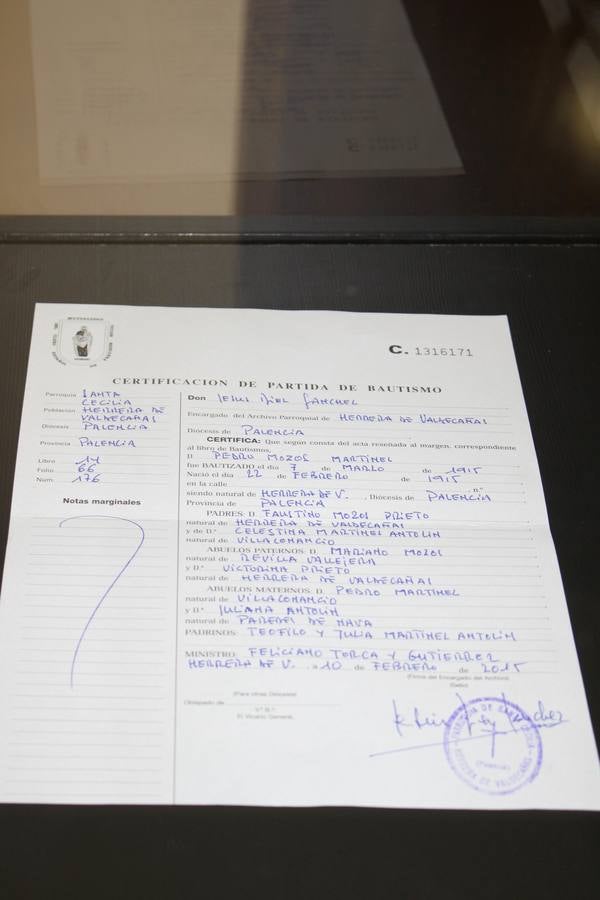 C. 1316171
CERTIFICACION DE PARTIDA DE BAUTISMO
Parroquia SANTA
CECILIA
Población HERRERA DE
VALDECAÑAS
Diócesis PALENCIA
Provincia PALENCIA
Libro 14
Folio 66
Núm. 176
Notas marginales
Don JESUS REL SANCHEZ
Encargado del Archivo Parroquial de HERRERA DE VALDECAÑAS
Diócesis de PALENCIA
CERTIFICA: Que según consta del acta reseñada al margen, correspondiente
al libro de Bautismo.
D. PEDRO MOZOS MARTINEZ
fue BAUTIZADO el día 7 de MARZO de 1915
Nació el día 22 de FEBRERO de 1915
en la calle n.º
siendo natural de HERRERA DE V. Diócesis de PALENCIA
Provincia de PALENCIA
PADRES: D. FAUSTINO MOZOS PRIETO
natural de HERRERA DE VALDECAÑAS
y de D.ª CELESTINA MARTINEZ ANTOLIN
natural de VILLACONANCIO
ABUELOS PATERNOS: D. MARIANO MOZOS
natural de REVILLA VALLEJERA
y D.ª VICTORINA PRIETO
natural de HERRERA DE VALDECAÑAS
ABUELOS MATERNOS: D. PEDRO MARTINEZ
natural de VILLACONANCIO
y D.ª JULIANA ANTOLIN
natural de PAREDES DE NAVA
PADRINOS: TEOFILO Y JULIA MARTINEZ ANTOLIN
MINISTRO: FELICIANO TORCA Y GUTIERREZ
HERRERA DE V. a 10 de FEBRERO de 2015
(Firma del Encargado del Archivo)
(Sello)
(Para otras Diócesis)
Obispado de
V.º B.º
El Vicario General,
HERRERA DE VALDECAÑAS
(Palencia)